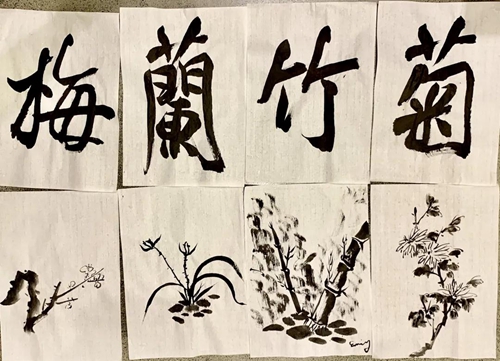 梅蘭竹菊
Emily